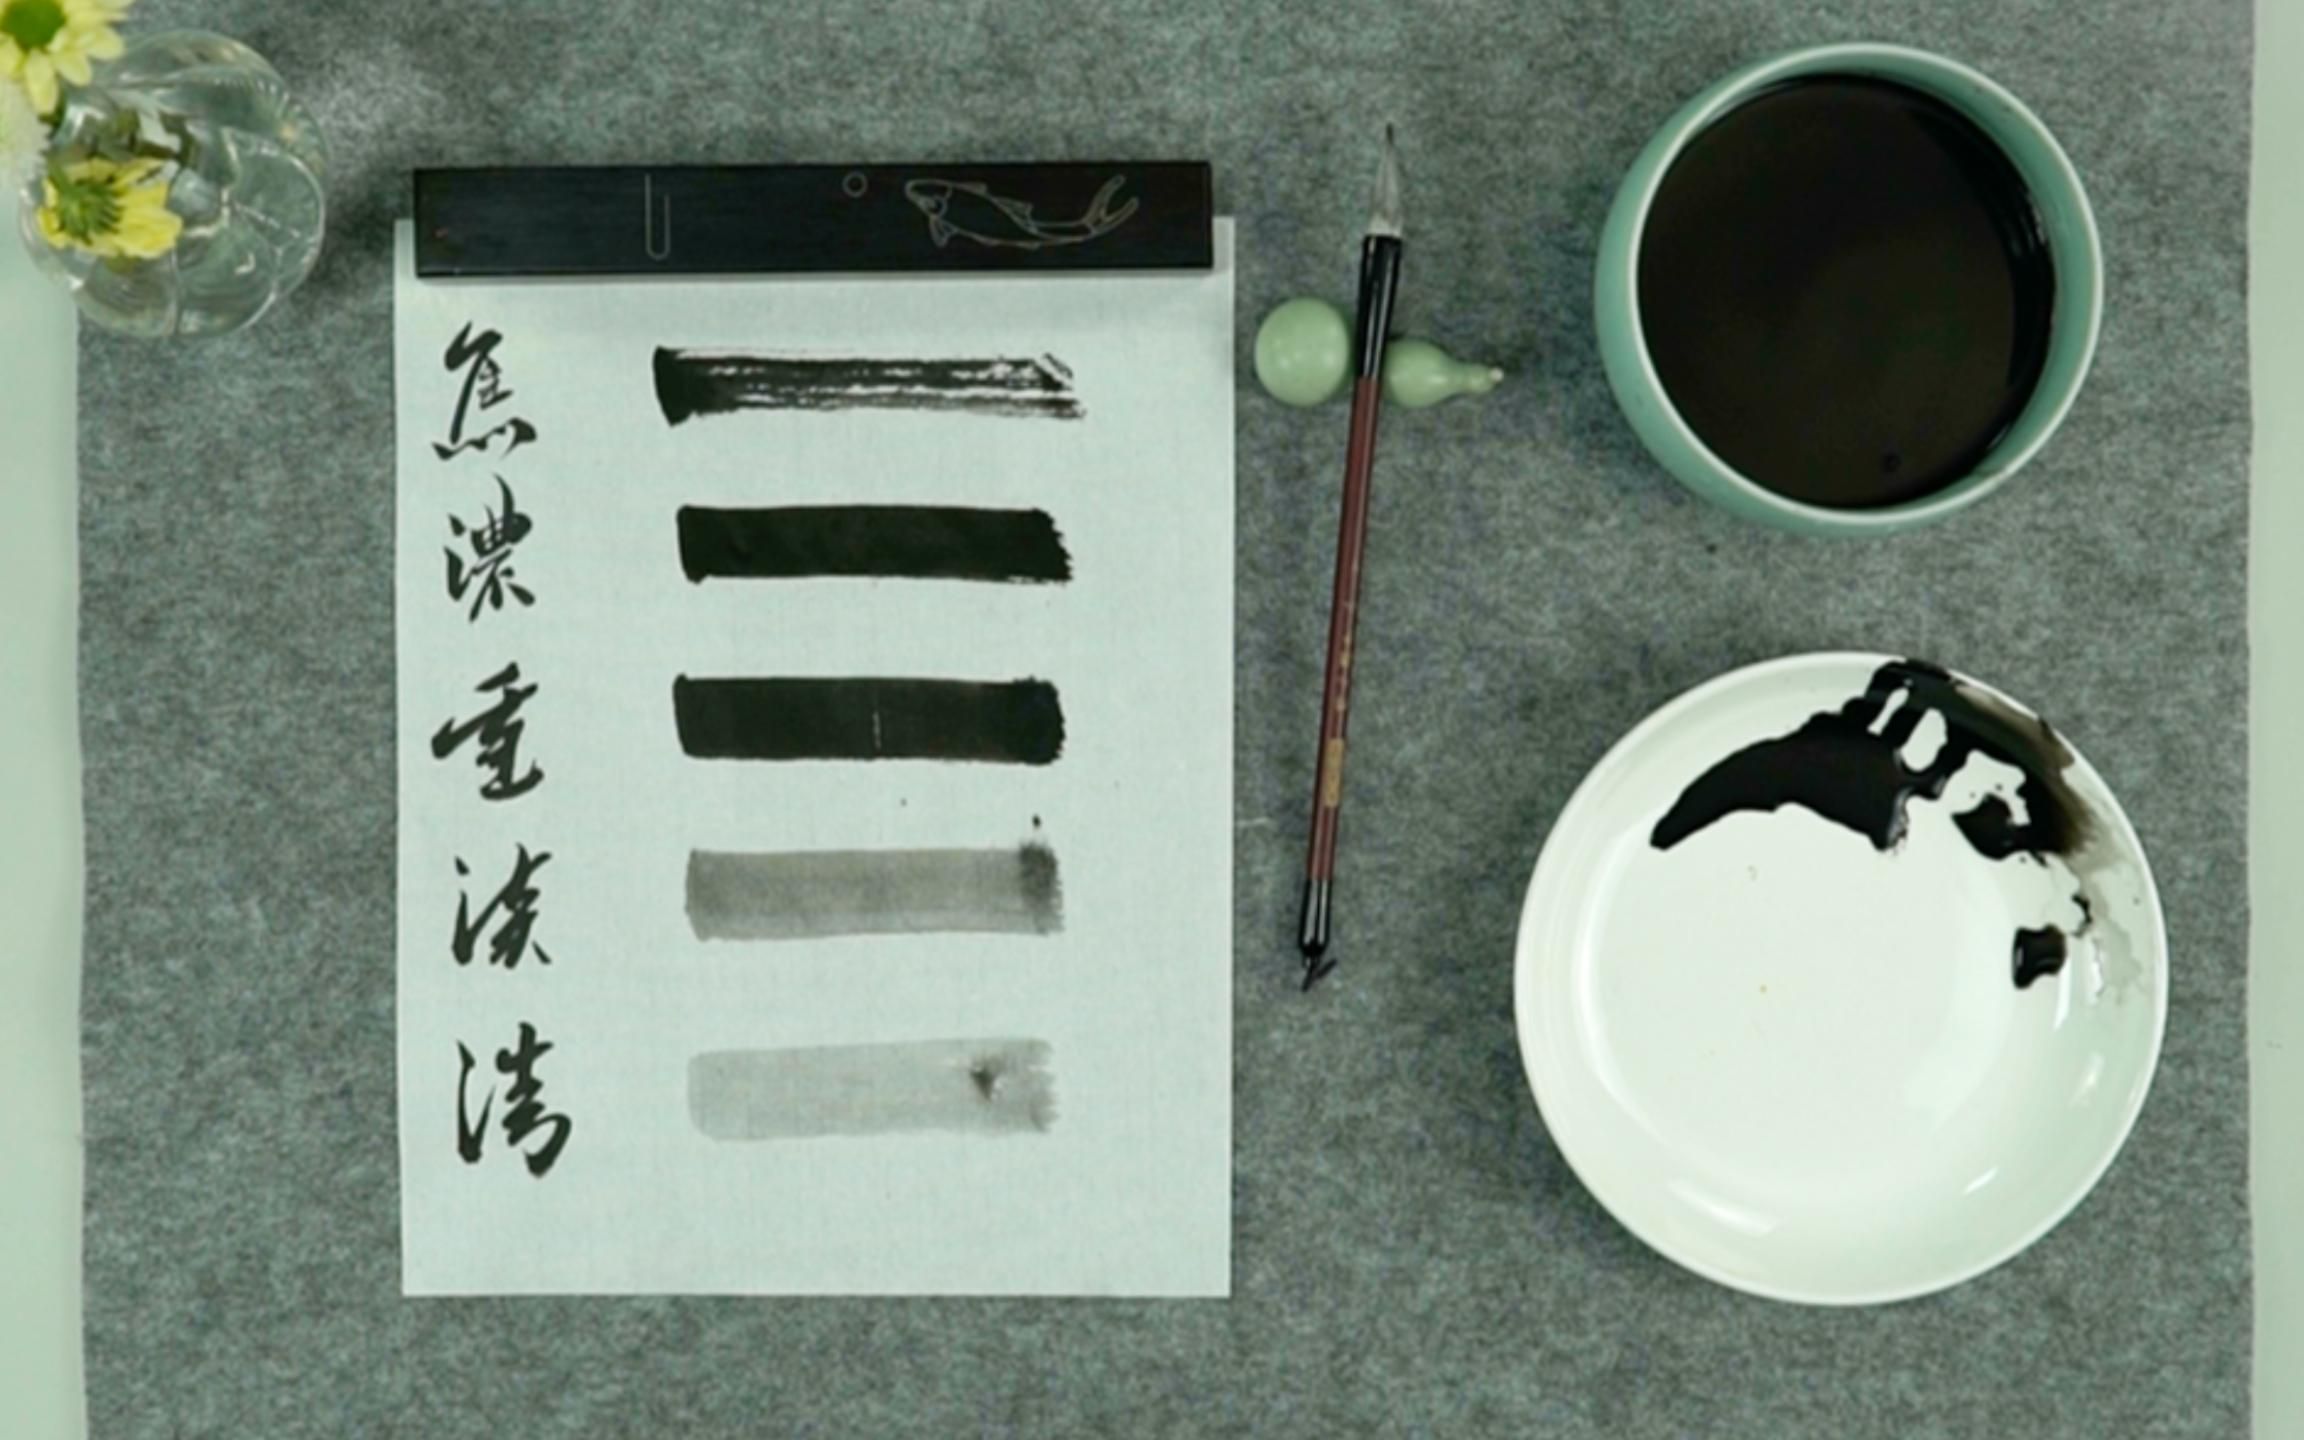 焦
濃
重
淡
清